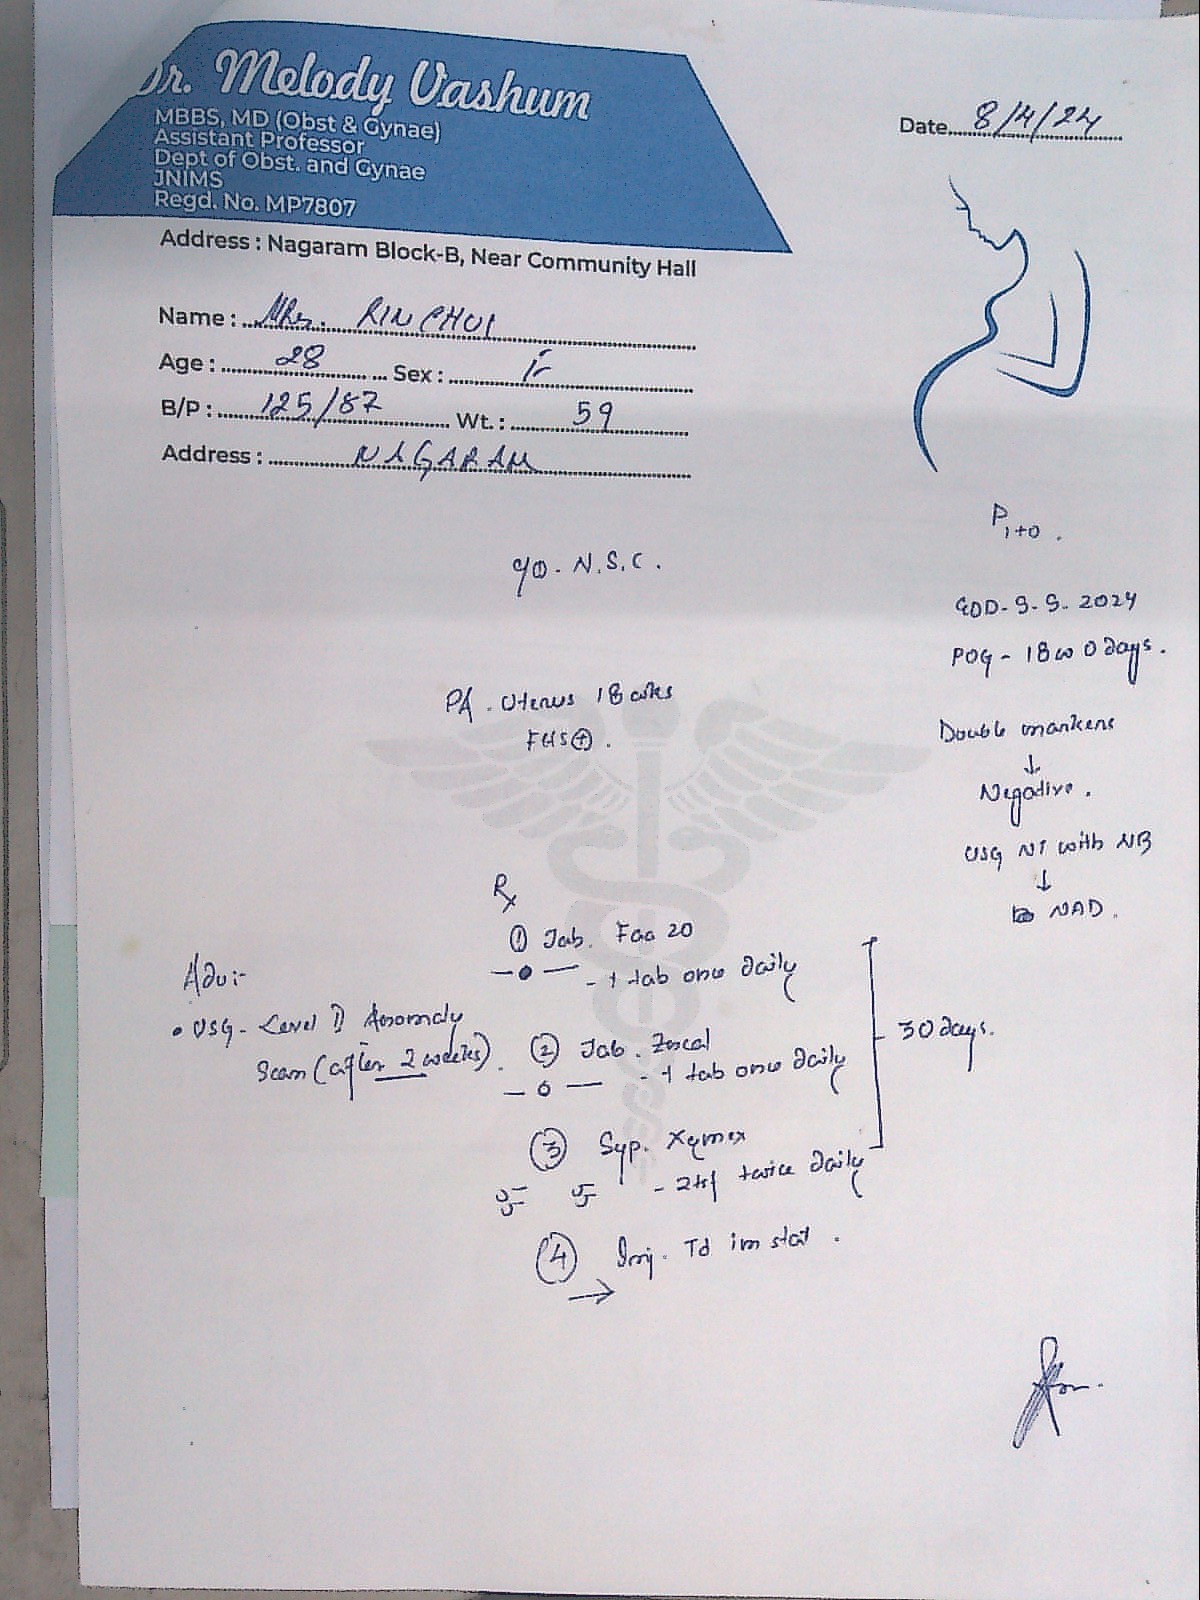 Dr. Melody Vashum
MBBS, MD (Obst & Gynae)
Assistant Professor
Dept of Obst. and Gynae
JNIMS
Regd. No. MP7807
Address : Nagaram Block-B, Near Community Hall
Date 8/4/24
Name : Mrs. RINCHUI
Age : 28 Sex : F
B/P : 125/87 Wt. : 59
Address : NAGARAM
P1+0.
N.S.C.
EDD- 9. 9. 2024
POG - 18w 0 days.
PA. Uterus 18 wks
FHS⊕.
Double markers
↓
Negative.
USG NT with NB
↓
NAD.
Rx
① Tab. Faa 20
- 1 tab once daily
② Tab. Zocal
- 1 tab once daily
③ Syp. Xymex
- 2tsf twice daily
30 days.
④ Inj. Td im stat.
→
Adv:-
• USG - Level II Anomaly
Scan (after 2 weeks).